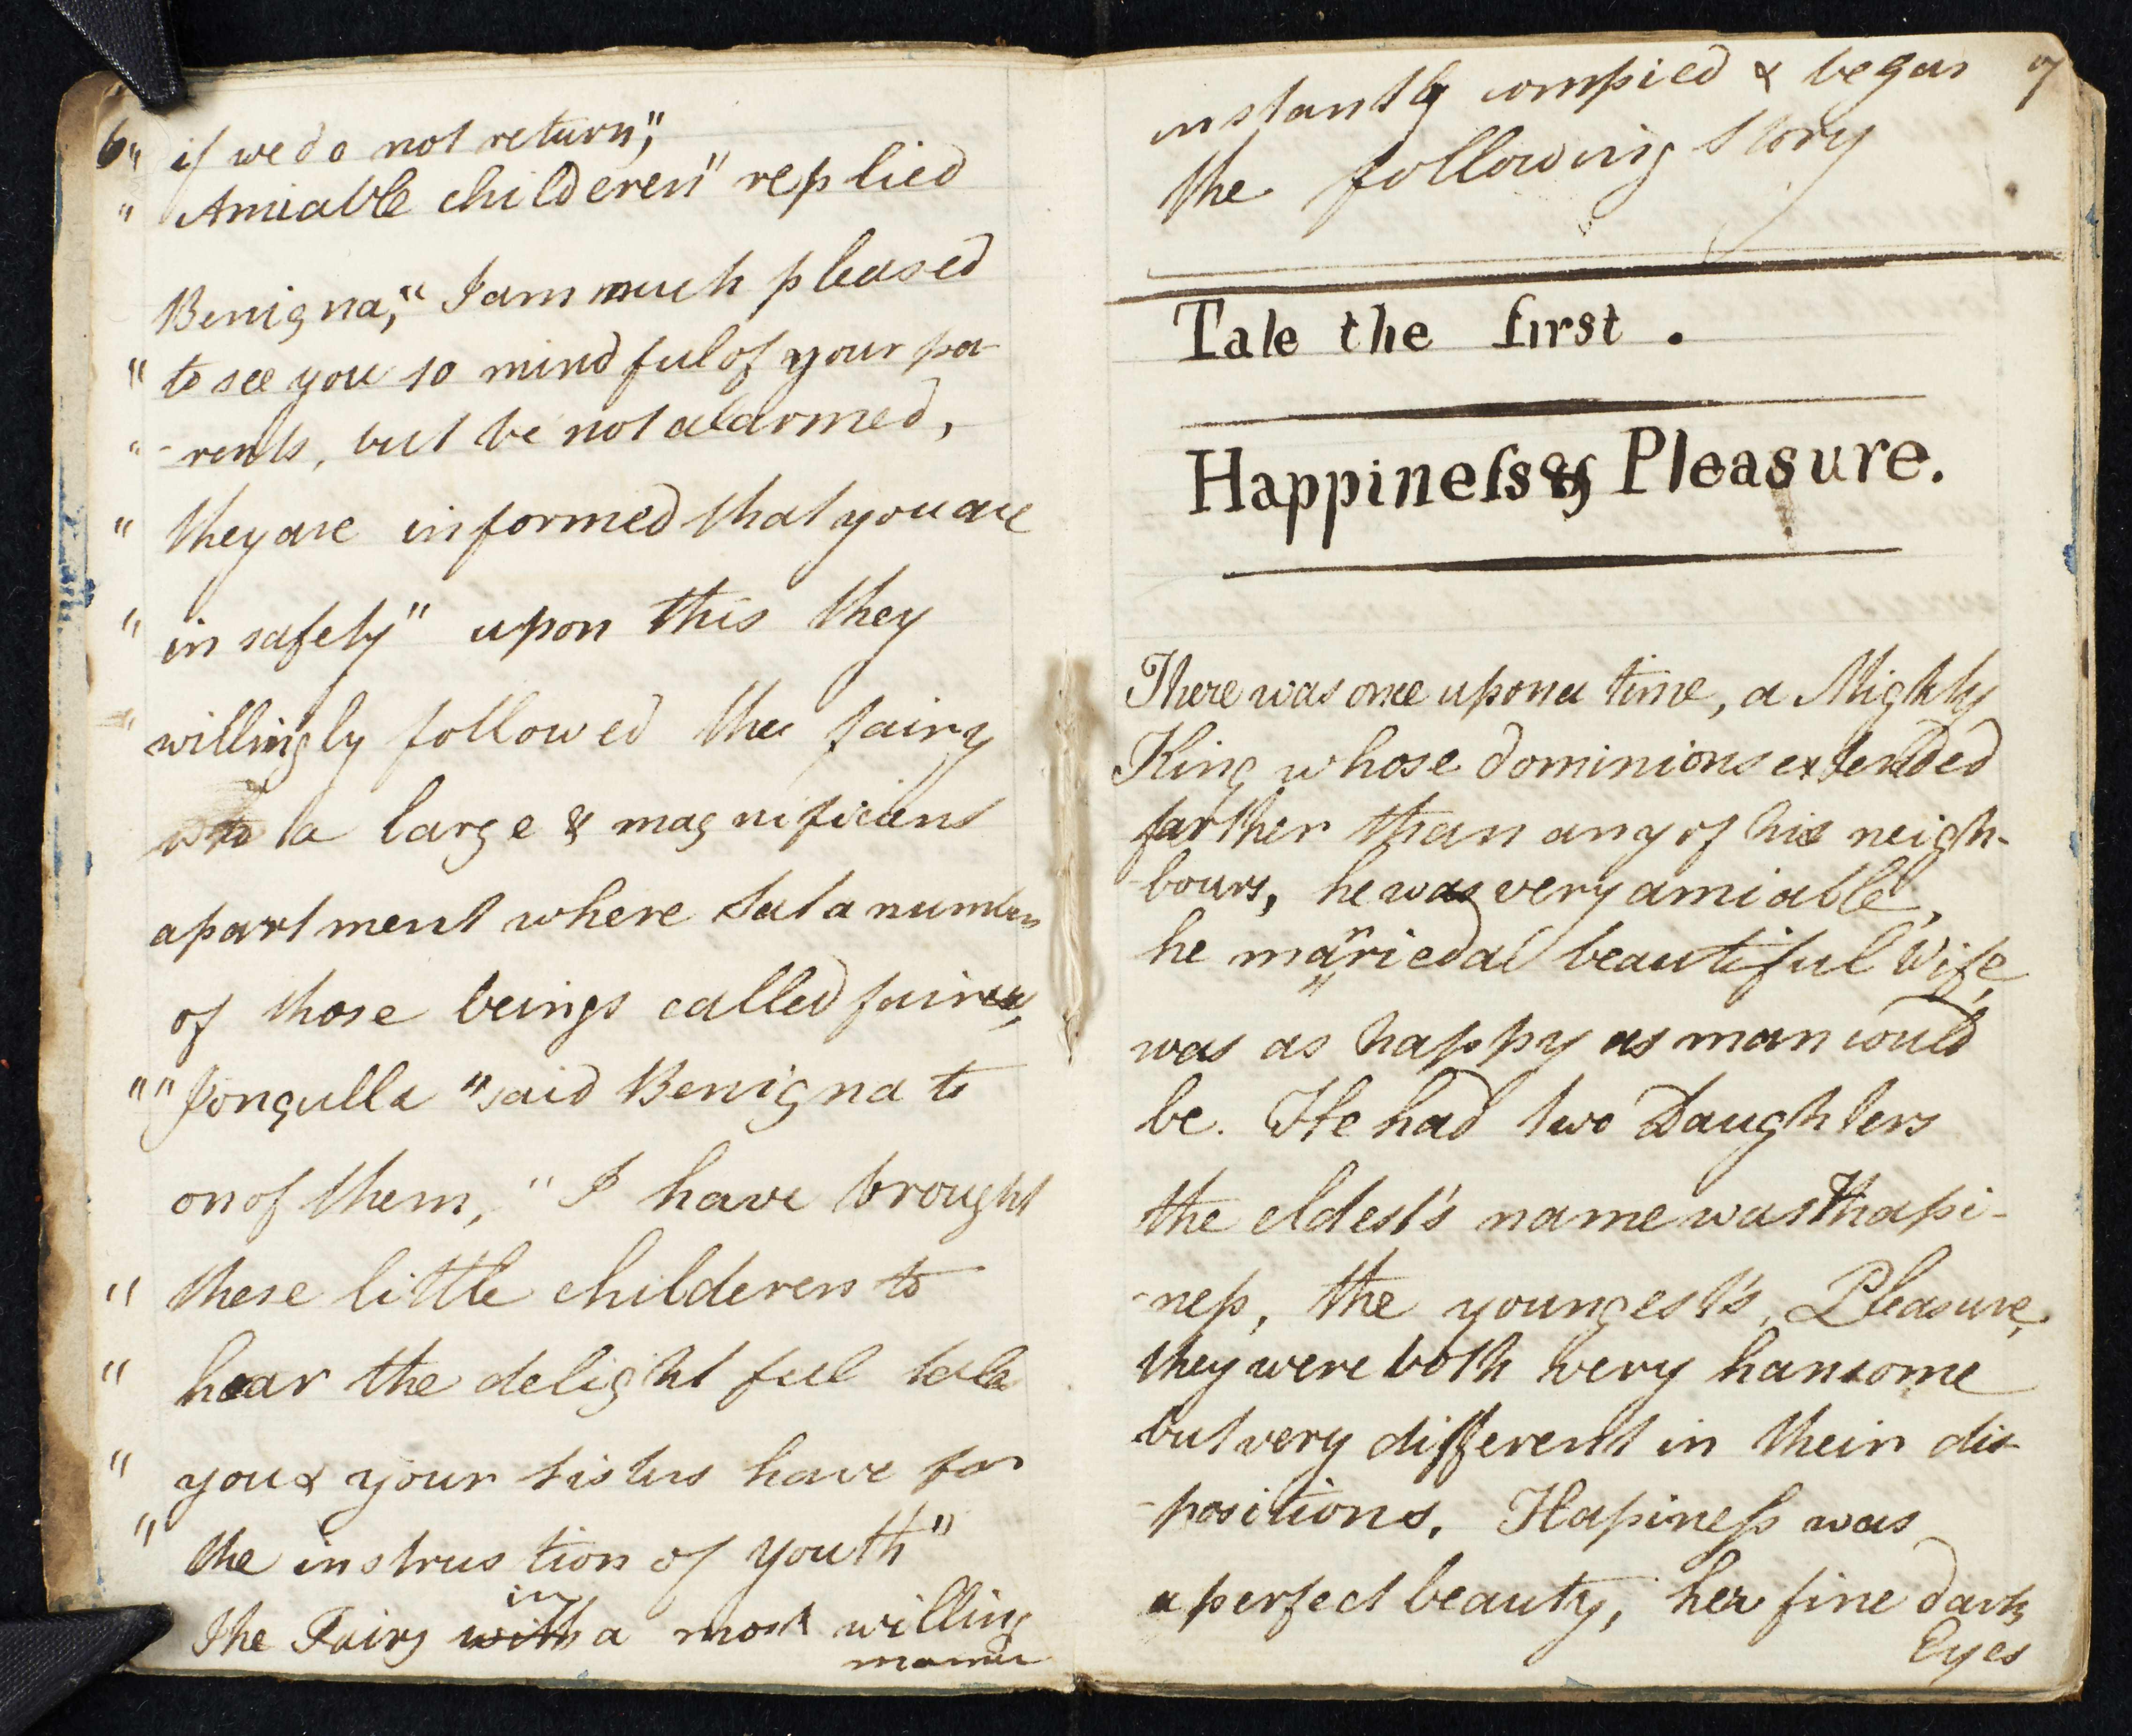 6
" if we do not return,"
" Amiable childeren" replied
Benigna," I am much pleased
" to see you so mindful of your pa-
" -rents, but be not alarmed,
" they are informed that you are
" in safety" upon this they
willingly followed the fairy
to a large & magnificens
apartment where sat a number
of those beings called fairies,
" "Jonquilla "said Benigna to
on of them, "I have brought
" these little childeren to
" hear the delightful tale
" you & your sisters have for
" the instrustion of youth"
in
The Fairy with a most willing
manner
7
instantly compied & began
the following story
Tale the first.
Happineſs & Pleasure.
There was once upon a time, a Mighty
King whose dominions extended
farther than any of his neigh-
-bours, he was very amiable,
he married a beautiful Wife,
was as happy as man could
be. He had two Daughters
the eldest's name was Hapi-
-neſs, the youngest's, Pleasure,
they were both very hansome
but very different in their dis-
-positions. Hapineſs was
a perfect beauty, her fine dark
Eyes